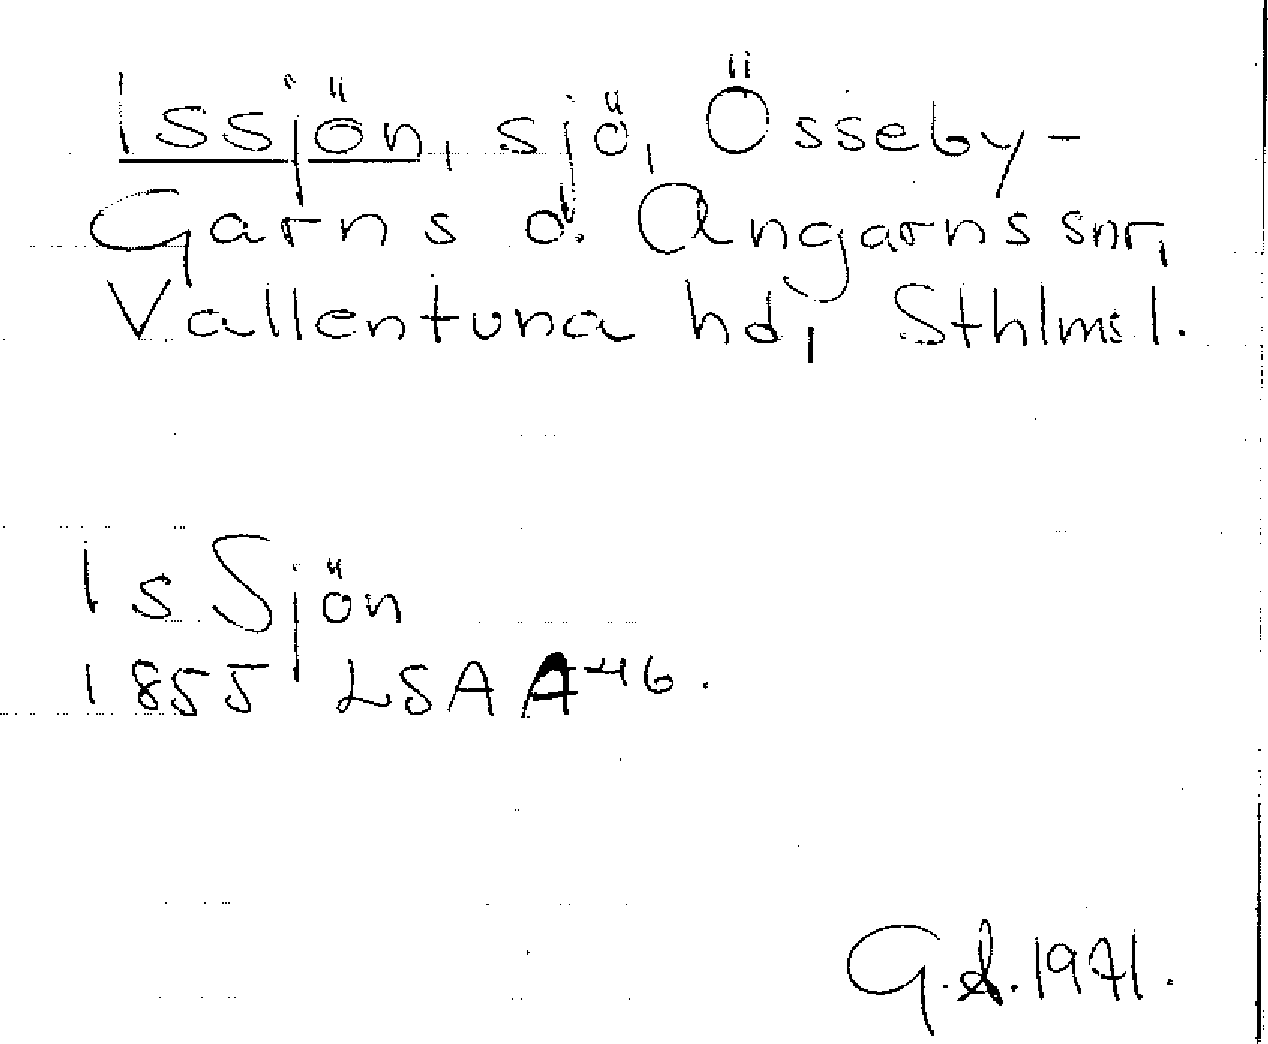 Issjön, sjö, Össeby-
Garns o. Angarns snr,
Vallentuna hd, Sthlms l.
Is Sjön
1855 LSA A46.
G. 1971.